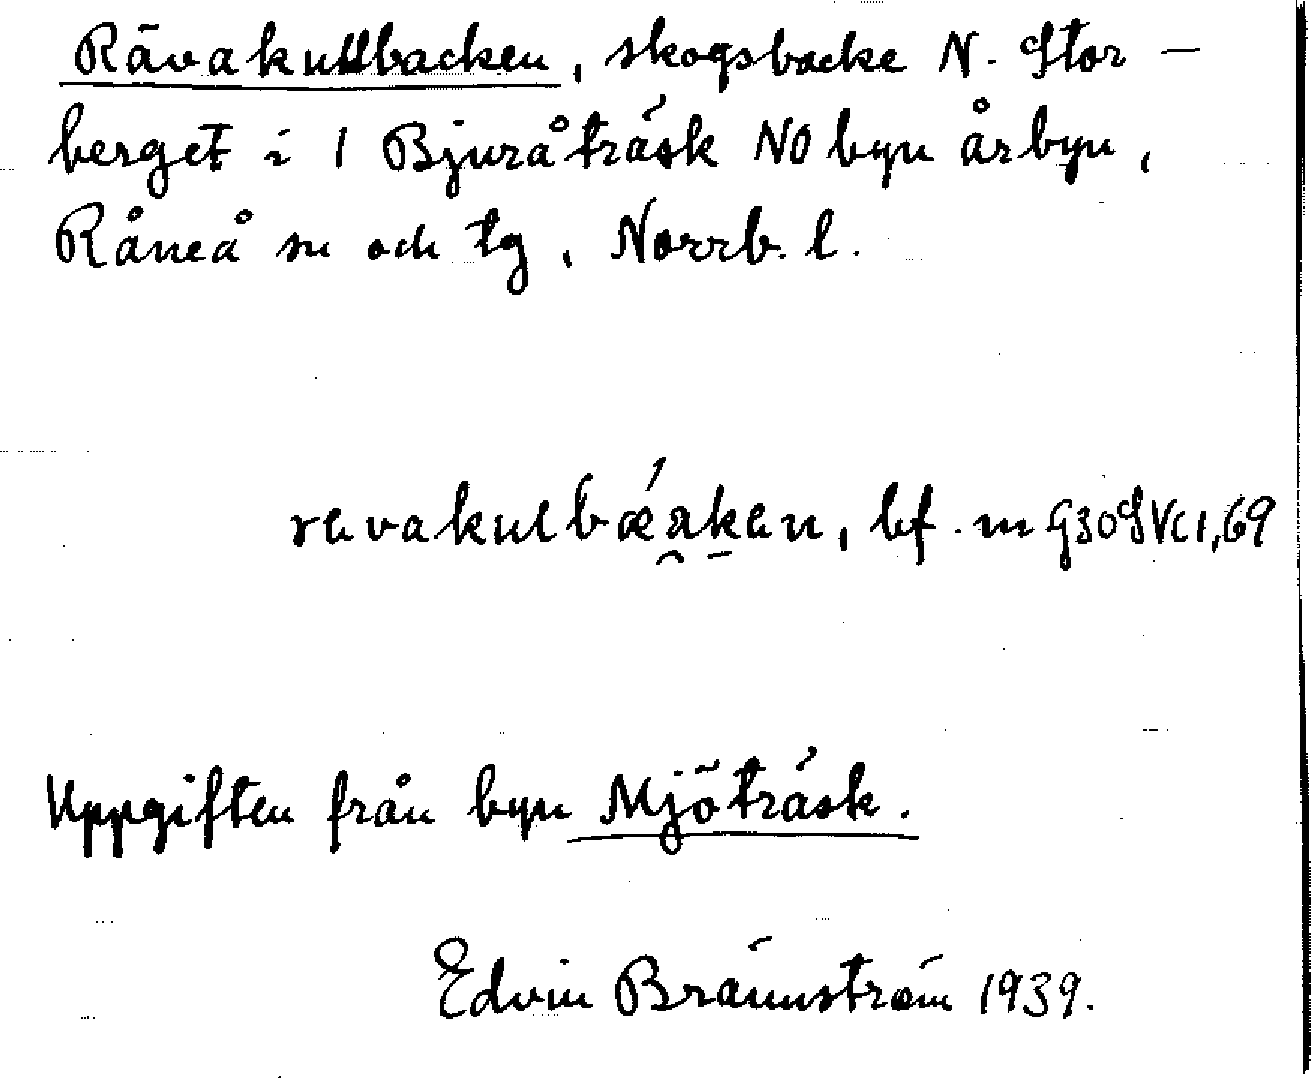 Rävakullbacken, skogsbacke N. Stor-
berget i 1 Bjuråträsk NO byn Årbyn,
Råneå sn och tg, Norrb. l.
bf. m
Uppgiften från byn Mjöträsk.
Edvin Brännström 1939.